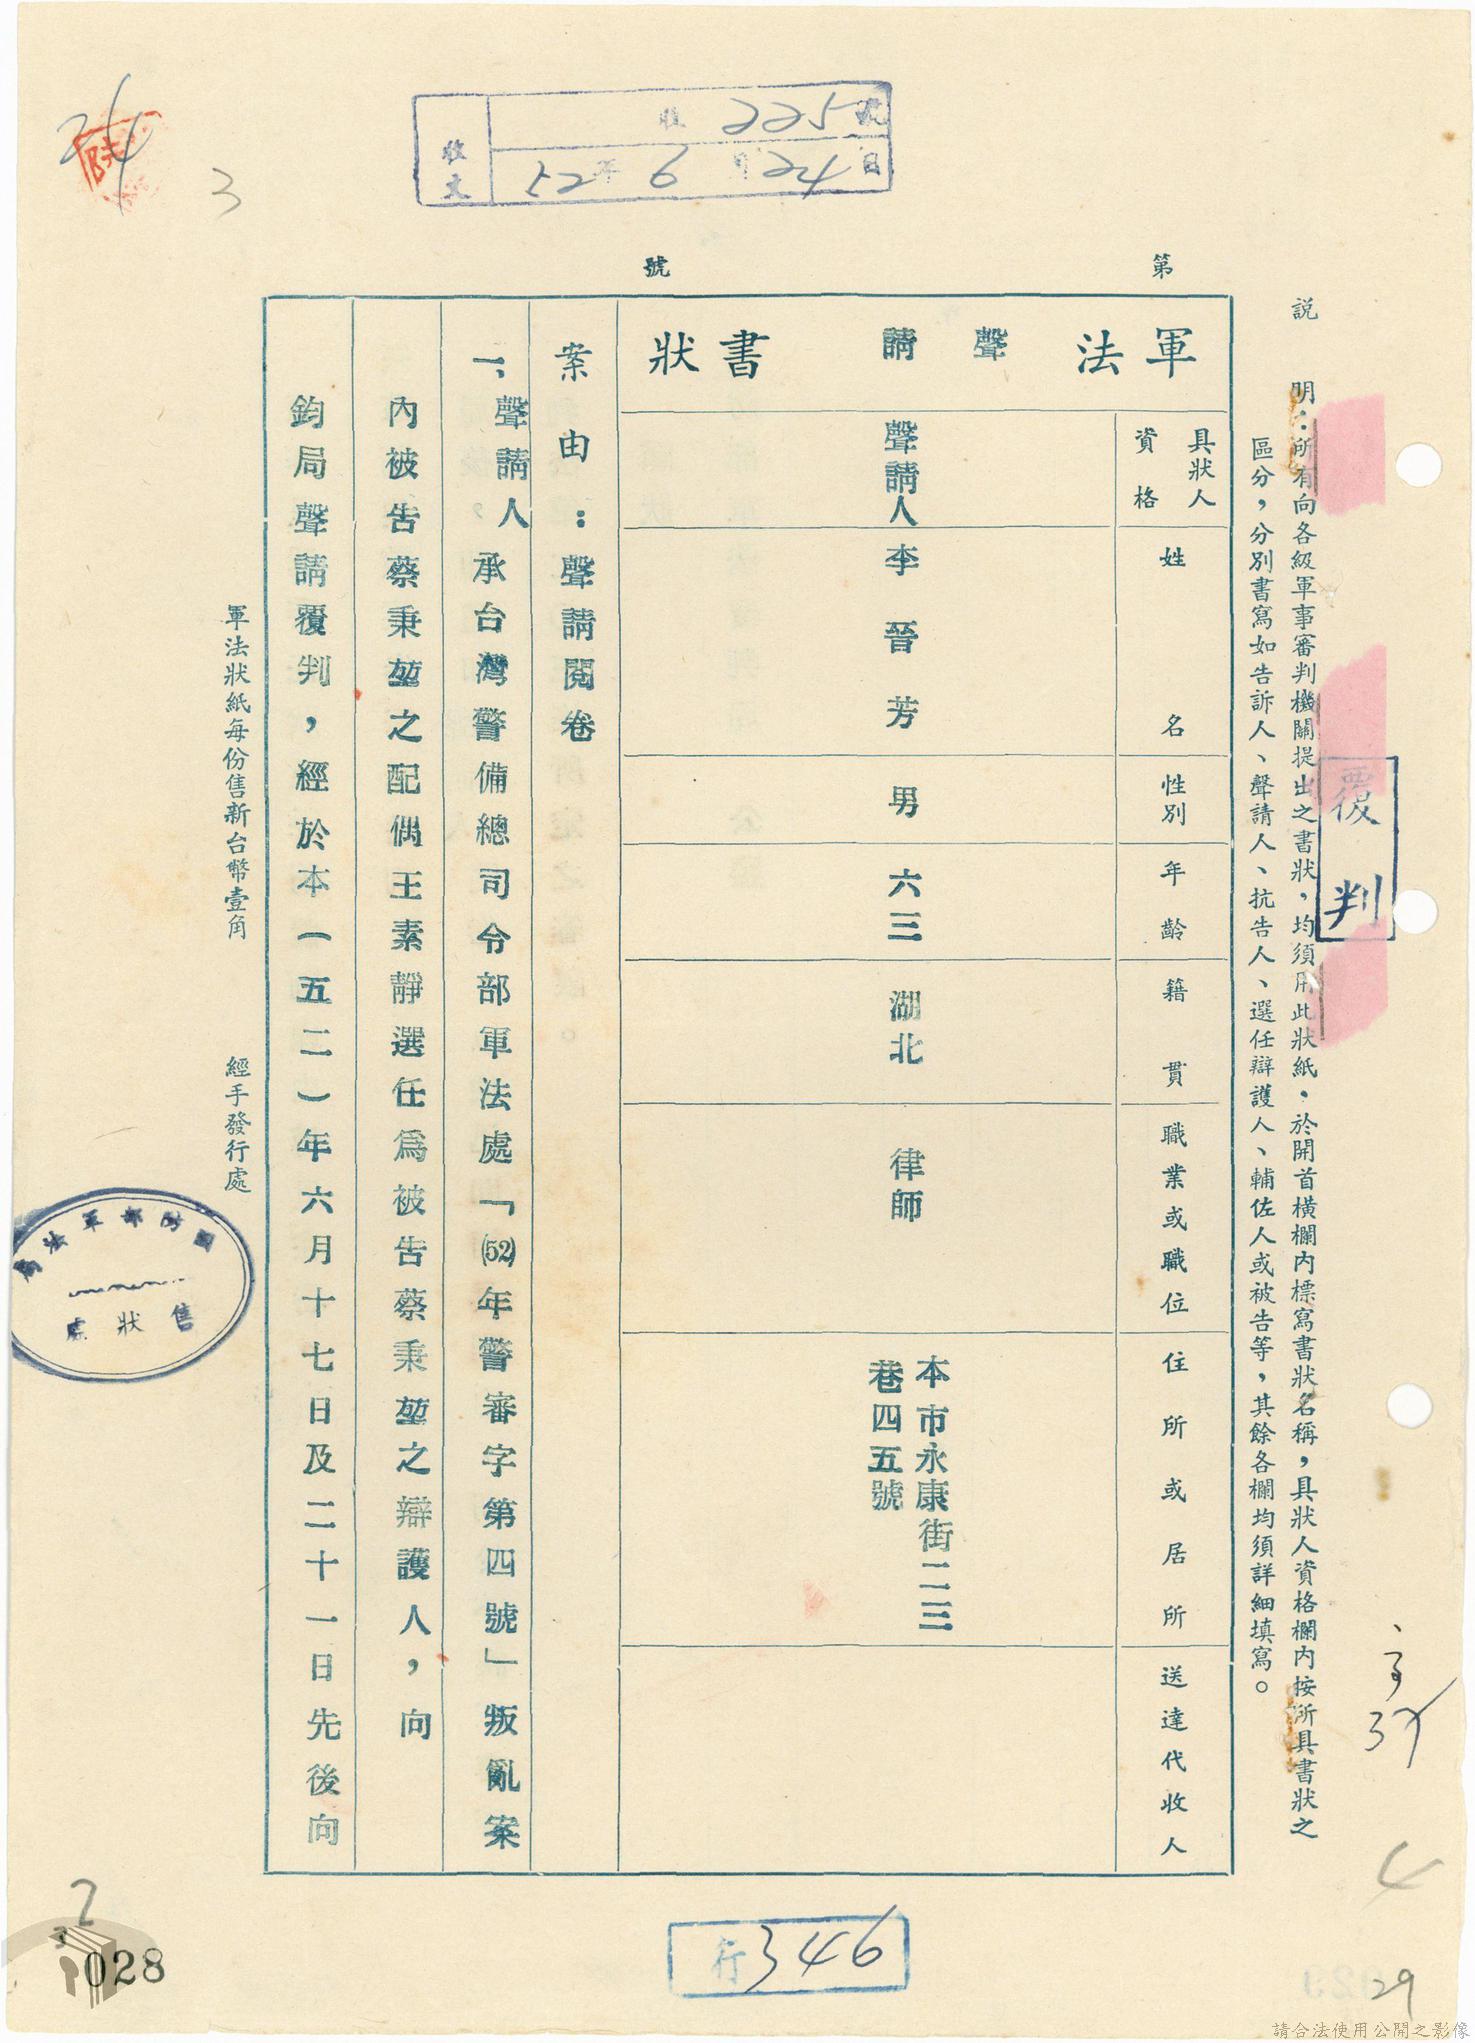 收文
收 225 號
52 年 6 月 24 日
3
第　號
說明：所有向各級軍事審判機關提出之書狀，均須用此狀紙。於開首橫欄內標寫書狀名稱，具狀人資格欄內按所具書狀之
區分，分別書寫如告訴人、聲請人、抗告人、選任辯護人、輔佐人或被告等，其餘各欄均須詳細填寫。
覆判
軍法聲請書狀
具狀人資格
姓名
性別
年齡
籍貫
職業或職位
住所或居所
送達代收人
聲請人
李晉芳
男
六三
湖北
律師
本市永康街二三
巷四五號
案由：聲請閱卷
一、聲請人承台灣警備總司令部軍法處「(52)年警審字第四號」叛亂案
內被告蔡秉堃之配偶王素靜選任為被告蔡秉堃之辯護人，向
鈞局聲請覆判，經於本（五二）年六月十七日及二十一日先後向
軍法狀紙每份售新台幣壹角
經手發行處
國防部軍法局
售狀處
行 346
4
29
2
028
請合法使用公開之影像